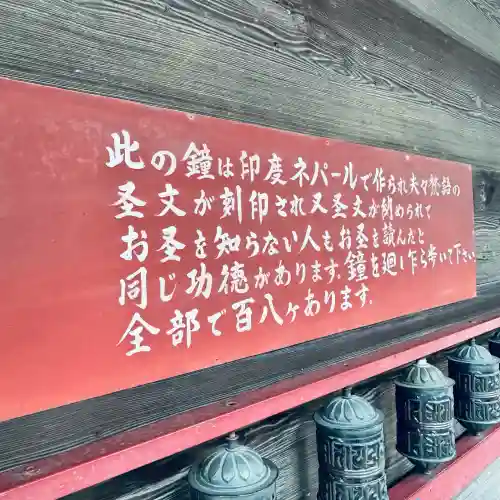 此の鐘は印度ネパールで作られ夫々梵語の
圣文が刻印され又圣文が納められて
お圣を知らない人もお圣を読んだと
同じ功徳があります。鐘を廻し乍ら歩いて下さい
全部で百八ヶあります.